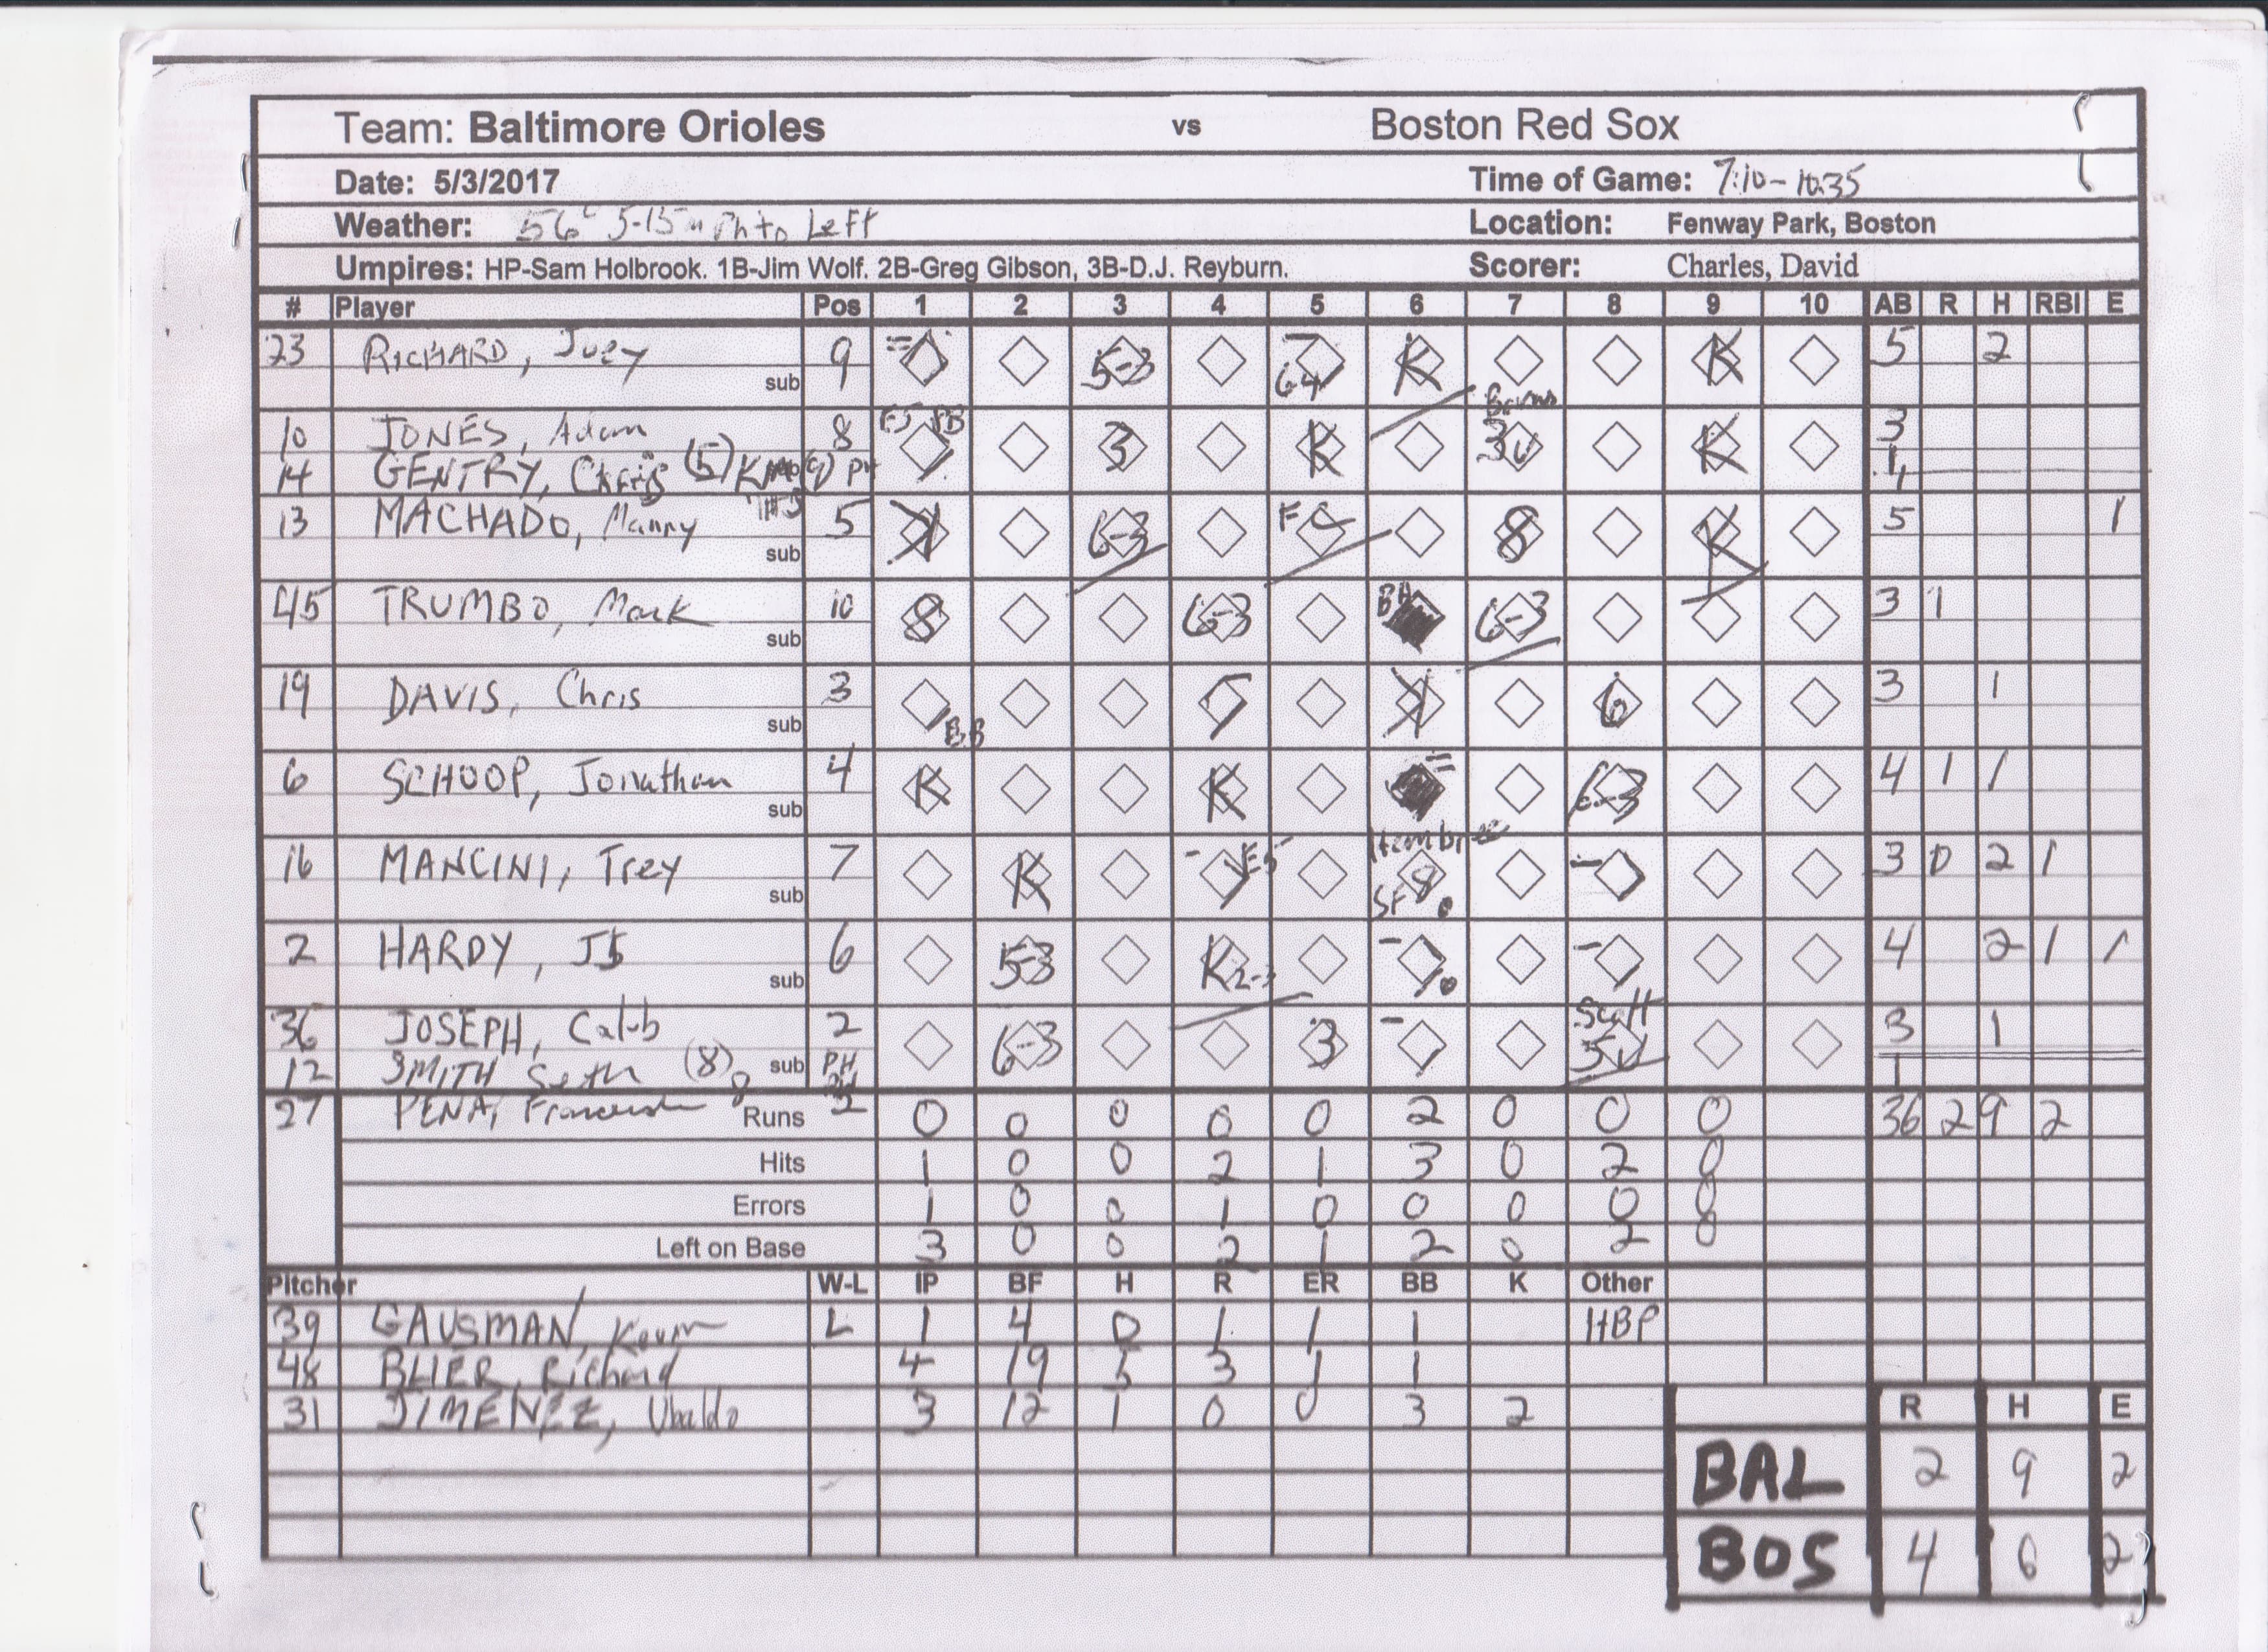 Team: Baltimore Orioles vs Boston Red Sox
Date: 5/3/2017 Time of Game: 7:10-10:35
Weather: 56° 5-15 mph to Left Location: Fenway Park, Boston
Umpires: HP-Sam Holbrook. 1B-Jim Wolf. 2B-Greg Gibson, 3B-D.J. Reyburn. Scorer: Charles, David
# Player Pos 1 2 3 4 5 6 7 8 9 10 AB R H RBI E
23 RICHARD, Joey 9 = 5-3 - 64 K K 5 2
sub
Barnes
10 JONES, Adam 8 E5 PB 3 K 3U K 3
14 GENTRY, (5) (9) PH 1
13 MACHADO, Manny 5 K 6-3 FC 8 K 5 1
sub
45 TRUMBO, Mark 10 8 6-3 BB 6-3 3 1
sub
19 DAVIS, Chris 3 BB K 6 3 1
sub
6 SCHOOP, Jonathan 4 K K = 6-3 4 1 1
sub
Hembree
16 MANCINI, Trey 7 K - E5 SF 8 - 3 0 2 1
sub
2 HARDY, JJ 6 5-3 K2-3 - - 4 2 1 1
sub
Scott
36 JOSEPH, Caleb 2 6-3 3 - 3U 3 1
12 SMITH Seth (8) sub PH 1
27 PENA, Francisco 2
Runs 0 0 0 0 0 2 0 0 0 36 2 9 2
Hits 1 0 0 2 1 3 0 2 0
Errors 1 0 0 1 0 0 0 0 0
Left on Base 3 0 0 2 1 2 0 2 0
Pitcher W-L IP BF H R ER BB K Other
39 GAUSMAN, Kevin L 1 4 0 1 1 1 HBP
48 BLIER, Richard 4 19 5 3 1 1
31 JIMENEZ, Ubaldo 3 12 1 0 0 3 2
R H E
BAL 2 9 2
BOS 4 6 2